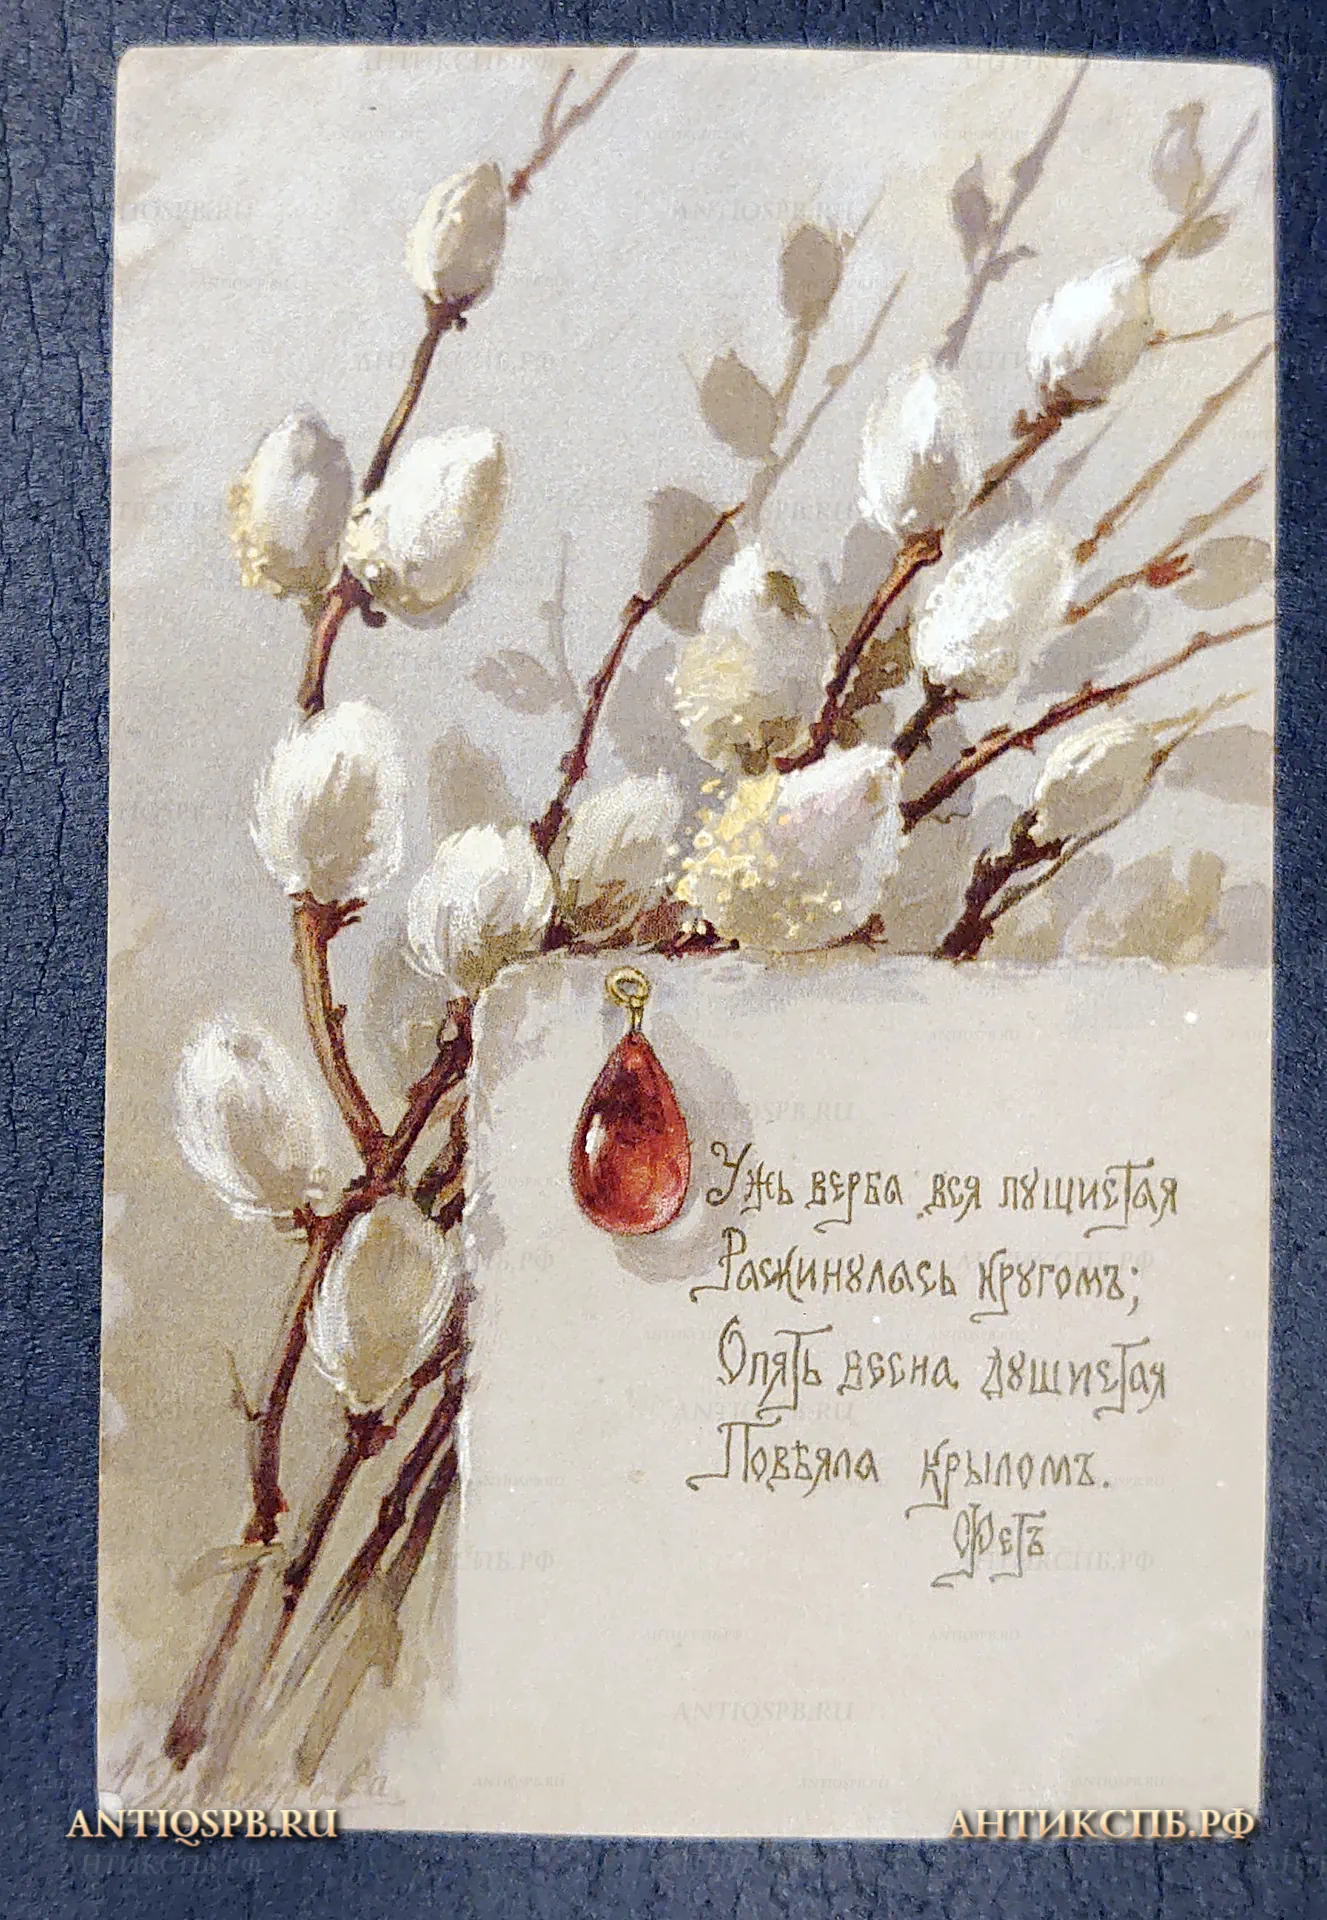 Ужь верба вся пушистая
Раскинулась кругомъ;
Опять весна душистая
Повѣяла крыломъ.
Фетъ
ANTIQSPB.RU
АНТИКСПБ.РФ